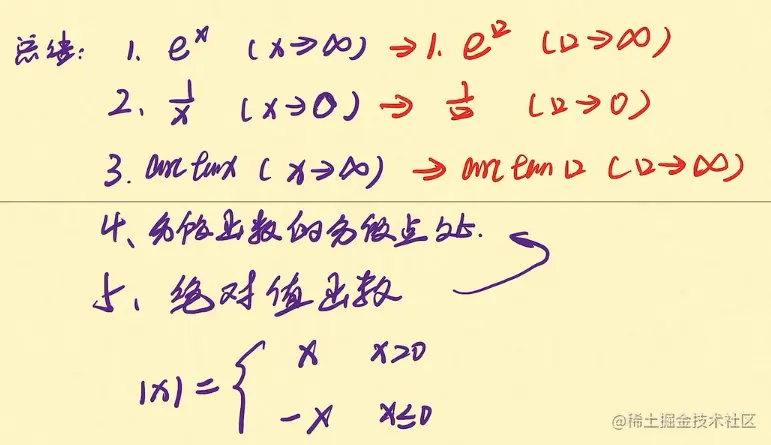 总结: 1. eˣ (x→∞) →1. e^□ (□→∞)
2、 1/x (x→0) → 1/□ (□→0)
3. arctanx (x→∞) → arctan□ (□→∞)
4、分段函数的分段点处.
5、绝对值函数
|x| = { x x>0
-x x≤0
@稀土掘金技术社区